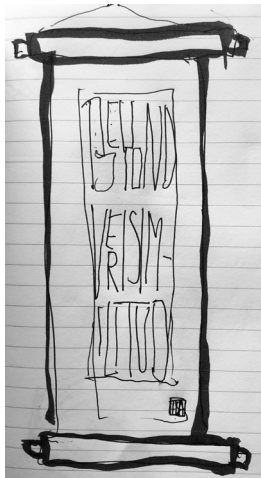 BEYOND
VERISIM-
ILITUD